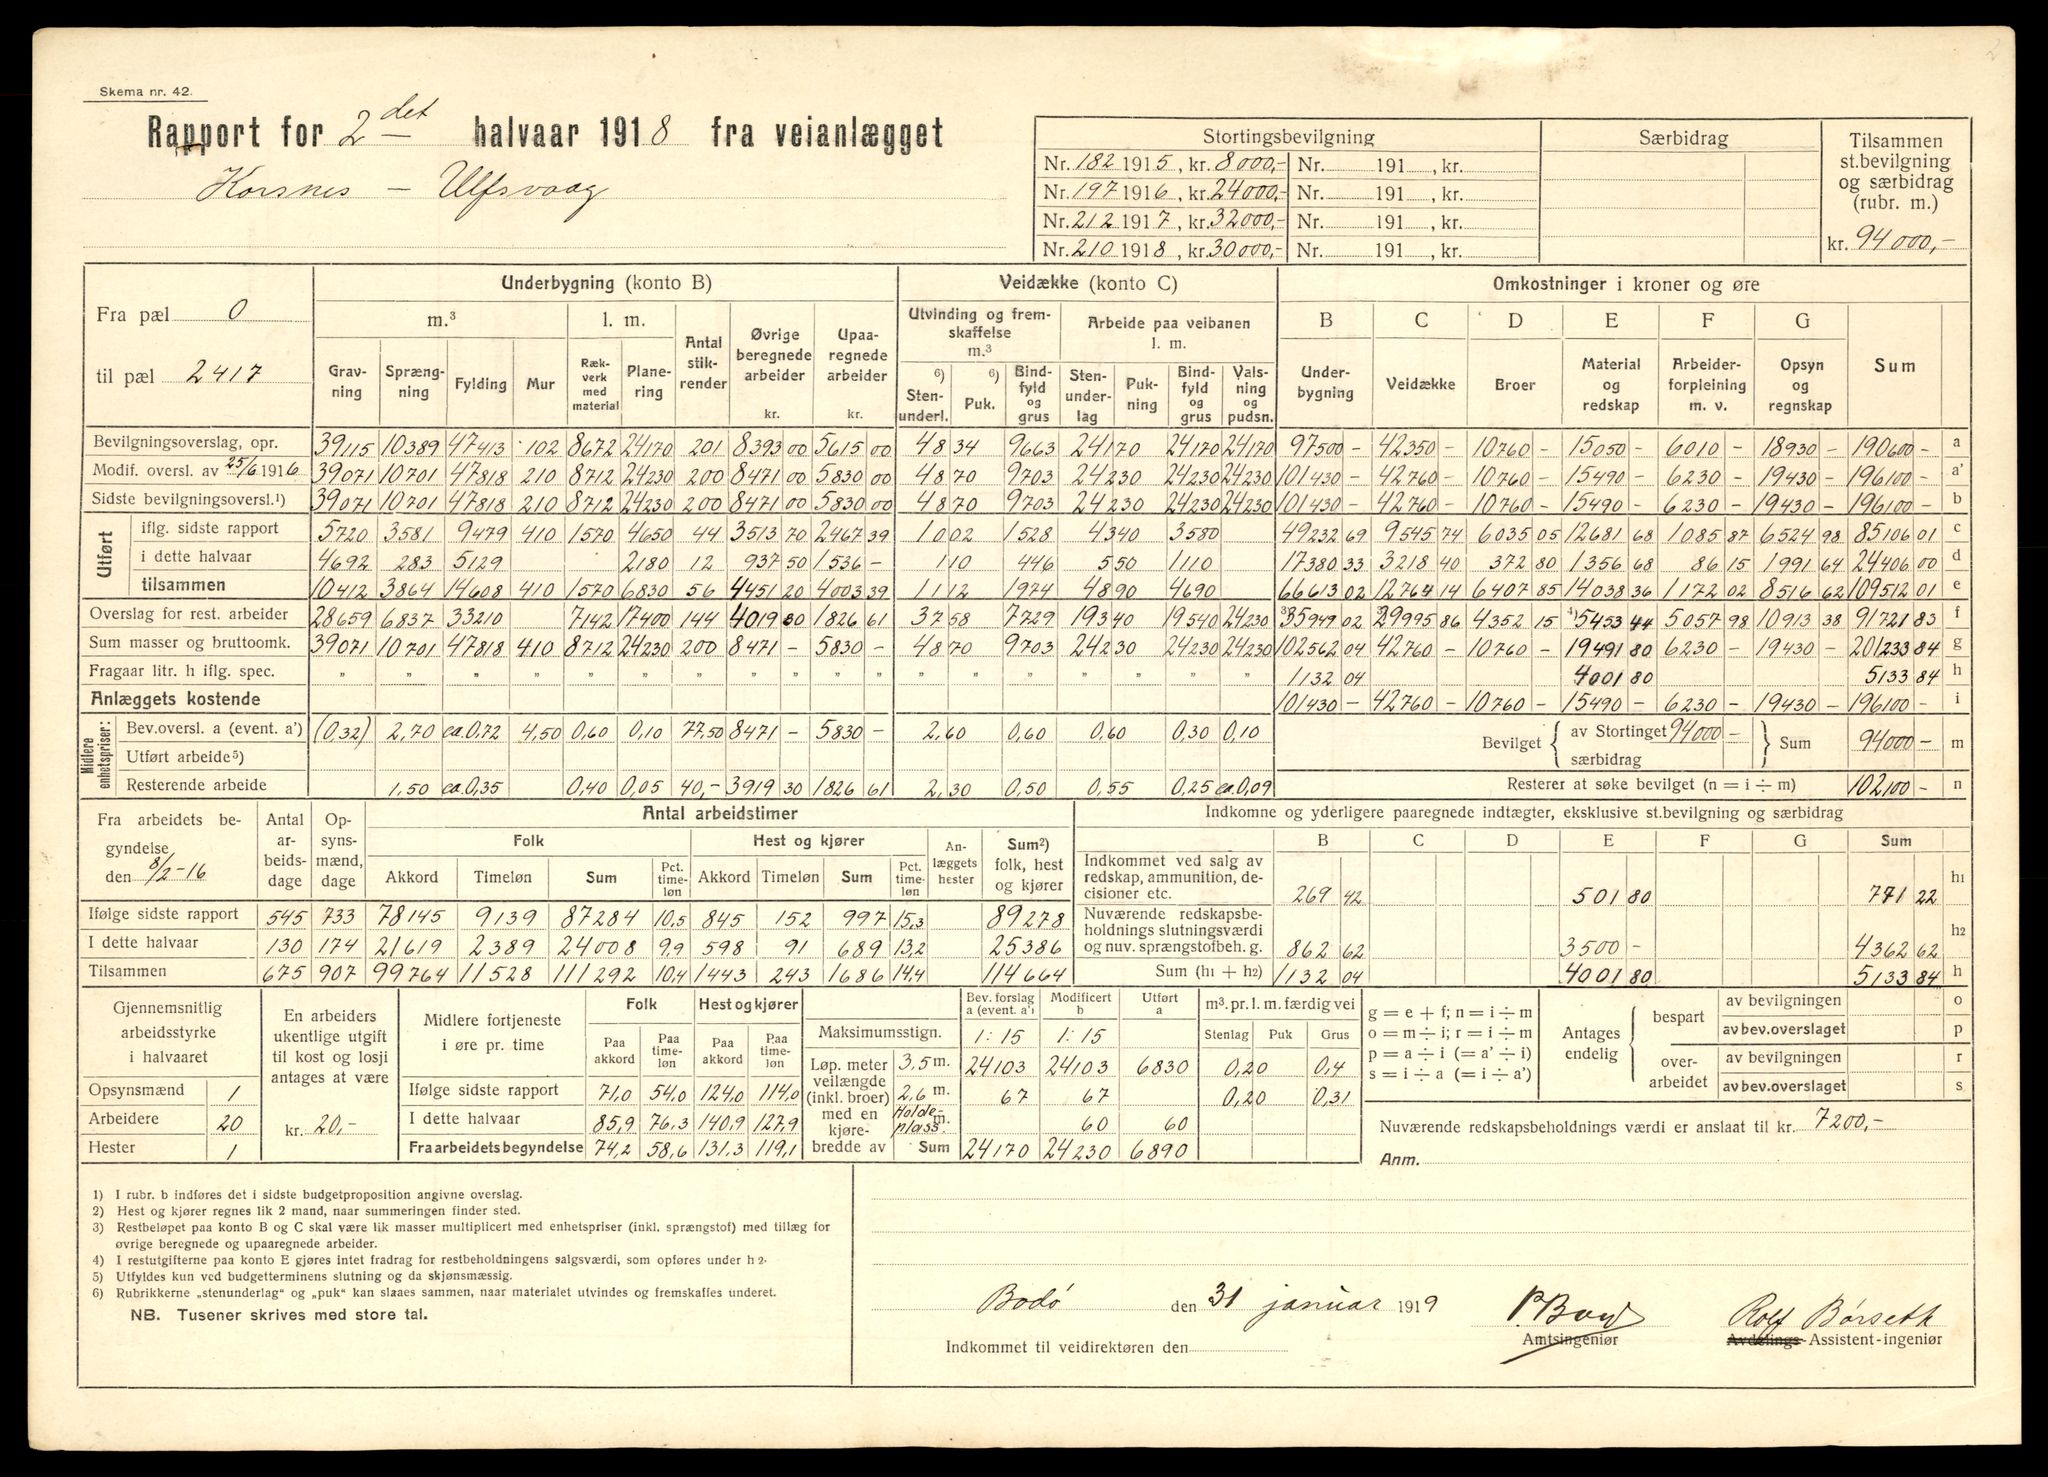 Skema nr. 42.
Rapport for 2det halvaar 1918 fra veianlægget
Korsnes – Ulfsvaag
Stortingsbevilgning Særbidrag Tilsammen st.bevilgning og særbidrag (rubr. m.)
Nr. 182 1915, kr. 8000,- Nr. 191 , kr.
Nr. 197 1916, kr. 24000,- Nr. 191 , kr.
Nr. 212 1917, kr. 32000,- Nr. 191 , kr.
Nr. 210 1918, kr. 30000,- Nr. 191 , kr. kr. 94000,-
Fra pæl 0
til pæl 2417
Underbygning (konto B) Veidække (konto C) Omkostninger i kroner og øre
m.³ l. m. Antal stikrender Øvrige beregnede arbeider kr. Upaaregnede arbeider kr. Utvinding og fremskaffelse m.³ Arbeide paa veibanen l. m. B C D E F G
Gravning Sprængning Fylding Mur Rækverk med material Planering ⁶) Stenunderl. ⁶) Puk. Bindfyld og grus Stenunderlag Pukning Bindfyld og grus Valsning og pudsn. Underbygning Veidække Broer Material og redskap Arbeiderforpleining m. v. Opsyn og regnskap Sum
Bevilgningsoverslag, opr. 39115 10389 47413 102 8672 24170 201 8393 00 5615 00 4834 9663 24170 24170 24170 97500 – 42350 – 10760 – 15050 – 6010 – 18930 – 190600 – a
Modif. oversl. av 25/6 1916 39071 10701 47818 210 8712 24230 200 8471 00 5830 00 4870 9703 24230 24230 24230 101430 – 42760 – 10760 – 15490 – 6230 – 19430 – 196100 – a'
Sidste bevilgningsoversl.¹) 39071 10701 47818 210 8712 24230 200 8471 00 5830 00 4870 9703 24230 24230 24230 101430 – 42760 – 10760 – 15490 – 6230 – 19430 – 196100 – b
Utført
iflg. sidste rapport 5720 3581 9479 410 1570 4650 44 3513 70 2467 39 1002 1528 4340 3580 49232 69 9545 74 6035 05 12681 68 1085 87 6524 98 85106 01 c
i dette halvaar 4692 283 5129 2180 12 937 50 1536 – 110 446 550 1110 17380 33 3218 40 372 80 1356 68 86 15 1991 64 24406 00 d
tilsammen 10412 3864 14608 410 1570 6830 56 4451 20 4003 39 1112 1974 4890 4690 66613 02 12764 14 6407 85 14038 36 1172 02 8516 62 109512 01 e
Overslag for rest. arbeider 28659 6837 33210 7142 17400 144 4019 80 1826 61 3758 7729 19340 19540 24230 ³)35949 02 ³)29995 86 4352 15 ⁴)5453 44 5057 98 10913 38 91721 83 f
Sum masser og bruttoomk. 39071 10701 47818 410 8712 24230 200 8471 – 5830 – 4870 9703 24230 24230 24230 102562 04 42760 – 10760 – 19491 80 6230 – 19430 – 201233 84 g
Fragaar litr. h iflg. spec. " " " " " " " " " " " " " " 1132 04 4001 80 5133 84 h
Anlæggets kostende 101430 – 42760 – 10760 – 15490 – 6230 – 19430 – 196100 – i
Midlere enhetspriser:
Bev.oversl. a (event. a') (0,32) 2,70 ca. 0,72 4,50 0,60 0,10 77,50 8471 – 5830 – 2,60 0,60 0,60 0,30 0,10 Bevilget { av Stortinget 94000 – særbidrag } Sum 94000 – m
Utført arbeide⁵)
Resterende arbeide 1,50 ca. 0,35 0,40 0,05 40,- 3919 30 1826 61 2,30 0,50 0,55 0,25 ca. 0,09 Resterer at søke bevilget (n = i ÷ m) 102100 – n
Fra arbeidets begyndelse den 8/2-16 Antal arbeidsdage Opsynsmænd, dage Antal arbeidstimer
Folk Hest og kjører Anlæggets hester Sum²) folk, hest og kjører
Akkord Timeløn Sum Pct. timeløn Akkord Timeløn Sum Pct. timeløn
Ifølge sidste rapport 545 733 78145 9139 87284 10,5 845 152 997 15,3 89278
I dette halvaar 130 174 21619 2389 24008 9,9 598 91 689 13,2 25386
Tilsammen 675 907 99764 11528 111292 10,4 1443 243 1686 14,4 114664
Indkomne og yderligere paaregnede indtægter, eksklusive st.bevilgning og særbidrag
B C D E F G Sum
Indkommet ved salg av redskap, ammunition, decisioner etc. 269 42 501 80 771 22 h1
Nuværende redskapsbeholdnings slutningsværdi og nuv. sprængstofbeh. g. 862 62 3500 – 4362 62 h2
Sum (h1 + h2) 1132 04 4001 80 5133 84 h
Gjennemsnitlig arbeidsstyrke i halvaaret
Opsynsmænd 1
Arbeidere 20
Hester 1
En arbeiders ukentlige utgift til kost og losji antages at være
kr. 20,-
Midlere fortjeneste i øre pr. time Folk Hest og kjører
Paa akkord Paa timeløn Paa akkord Paa timeløn
Ifølge sidste rapport 71,0 54,0 124,0 114,0
I dette halvaar 85,9 76,3 140,9 127,9
Fra arbeidets begyndelse 74,2 58,6 131,3 119,1
Bev. forslag a (event. a') Modificert b Utført a
Maksimumsstign. 1:15 1:15
Løp. meter veilængde (inkl. broer) med en kjørebredde av
3,5 m. 24103 24103 6830
2,6 m. 67 67
Holdeplass m. 60 60
Sum 24170 24230 6890
m³. pr. l. m. færdig vei
Stenlag Puk Grus
0,20 0,4
0,20 0,31
g = e + f; n = i ÷ m
o = m ÷ i; r = i ÷ m
p = a ÷ i (= a' ÷ i)
s = i ÷ a (= i ÷ a')
Antages endelig { bespart av bevilgningen o
av bev.overslaget p
overarbeidet av bevilgningen r
av bev.overslaget s
Nuværende redskapsbeholdnings værdi er anslaat til kr. 7200,-
Anm.
1) I rubr. b indføres det i sidste budgetproposition angivne overslag.
2) Hest og kjører regnes lik 2 mand, naar summeringen finder sted.
3) Restbeløpet paa konto B og C skal være lik masser multiplicert med enhetspriser (inkl. sprængstof) med tillæg for
øvrige beregnede og upaaregnede arbeider.
4) I restutgifterne paa konto E gjøres intet fradrag for restbeholdningens salgsværdi, som opføres under h 2.
5) Utfyldes kun ved budgetterminens slutning og da skjønsmæssig.
6) Rubrikkerne „stenunderlag" og „puk" kan slaaes sammen, naar materialet utvindes og fremskaffes underet.
NB. Tusener skrives med store tal.
Bodø den 31 januar 1919
Rolf Børseth
Amtsingeniør Avdelings- Assistent-ingeniør
Indkommet til veidirektøren den